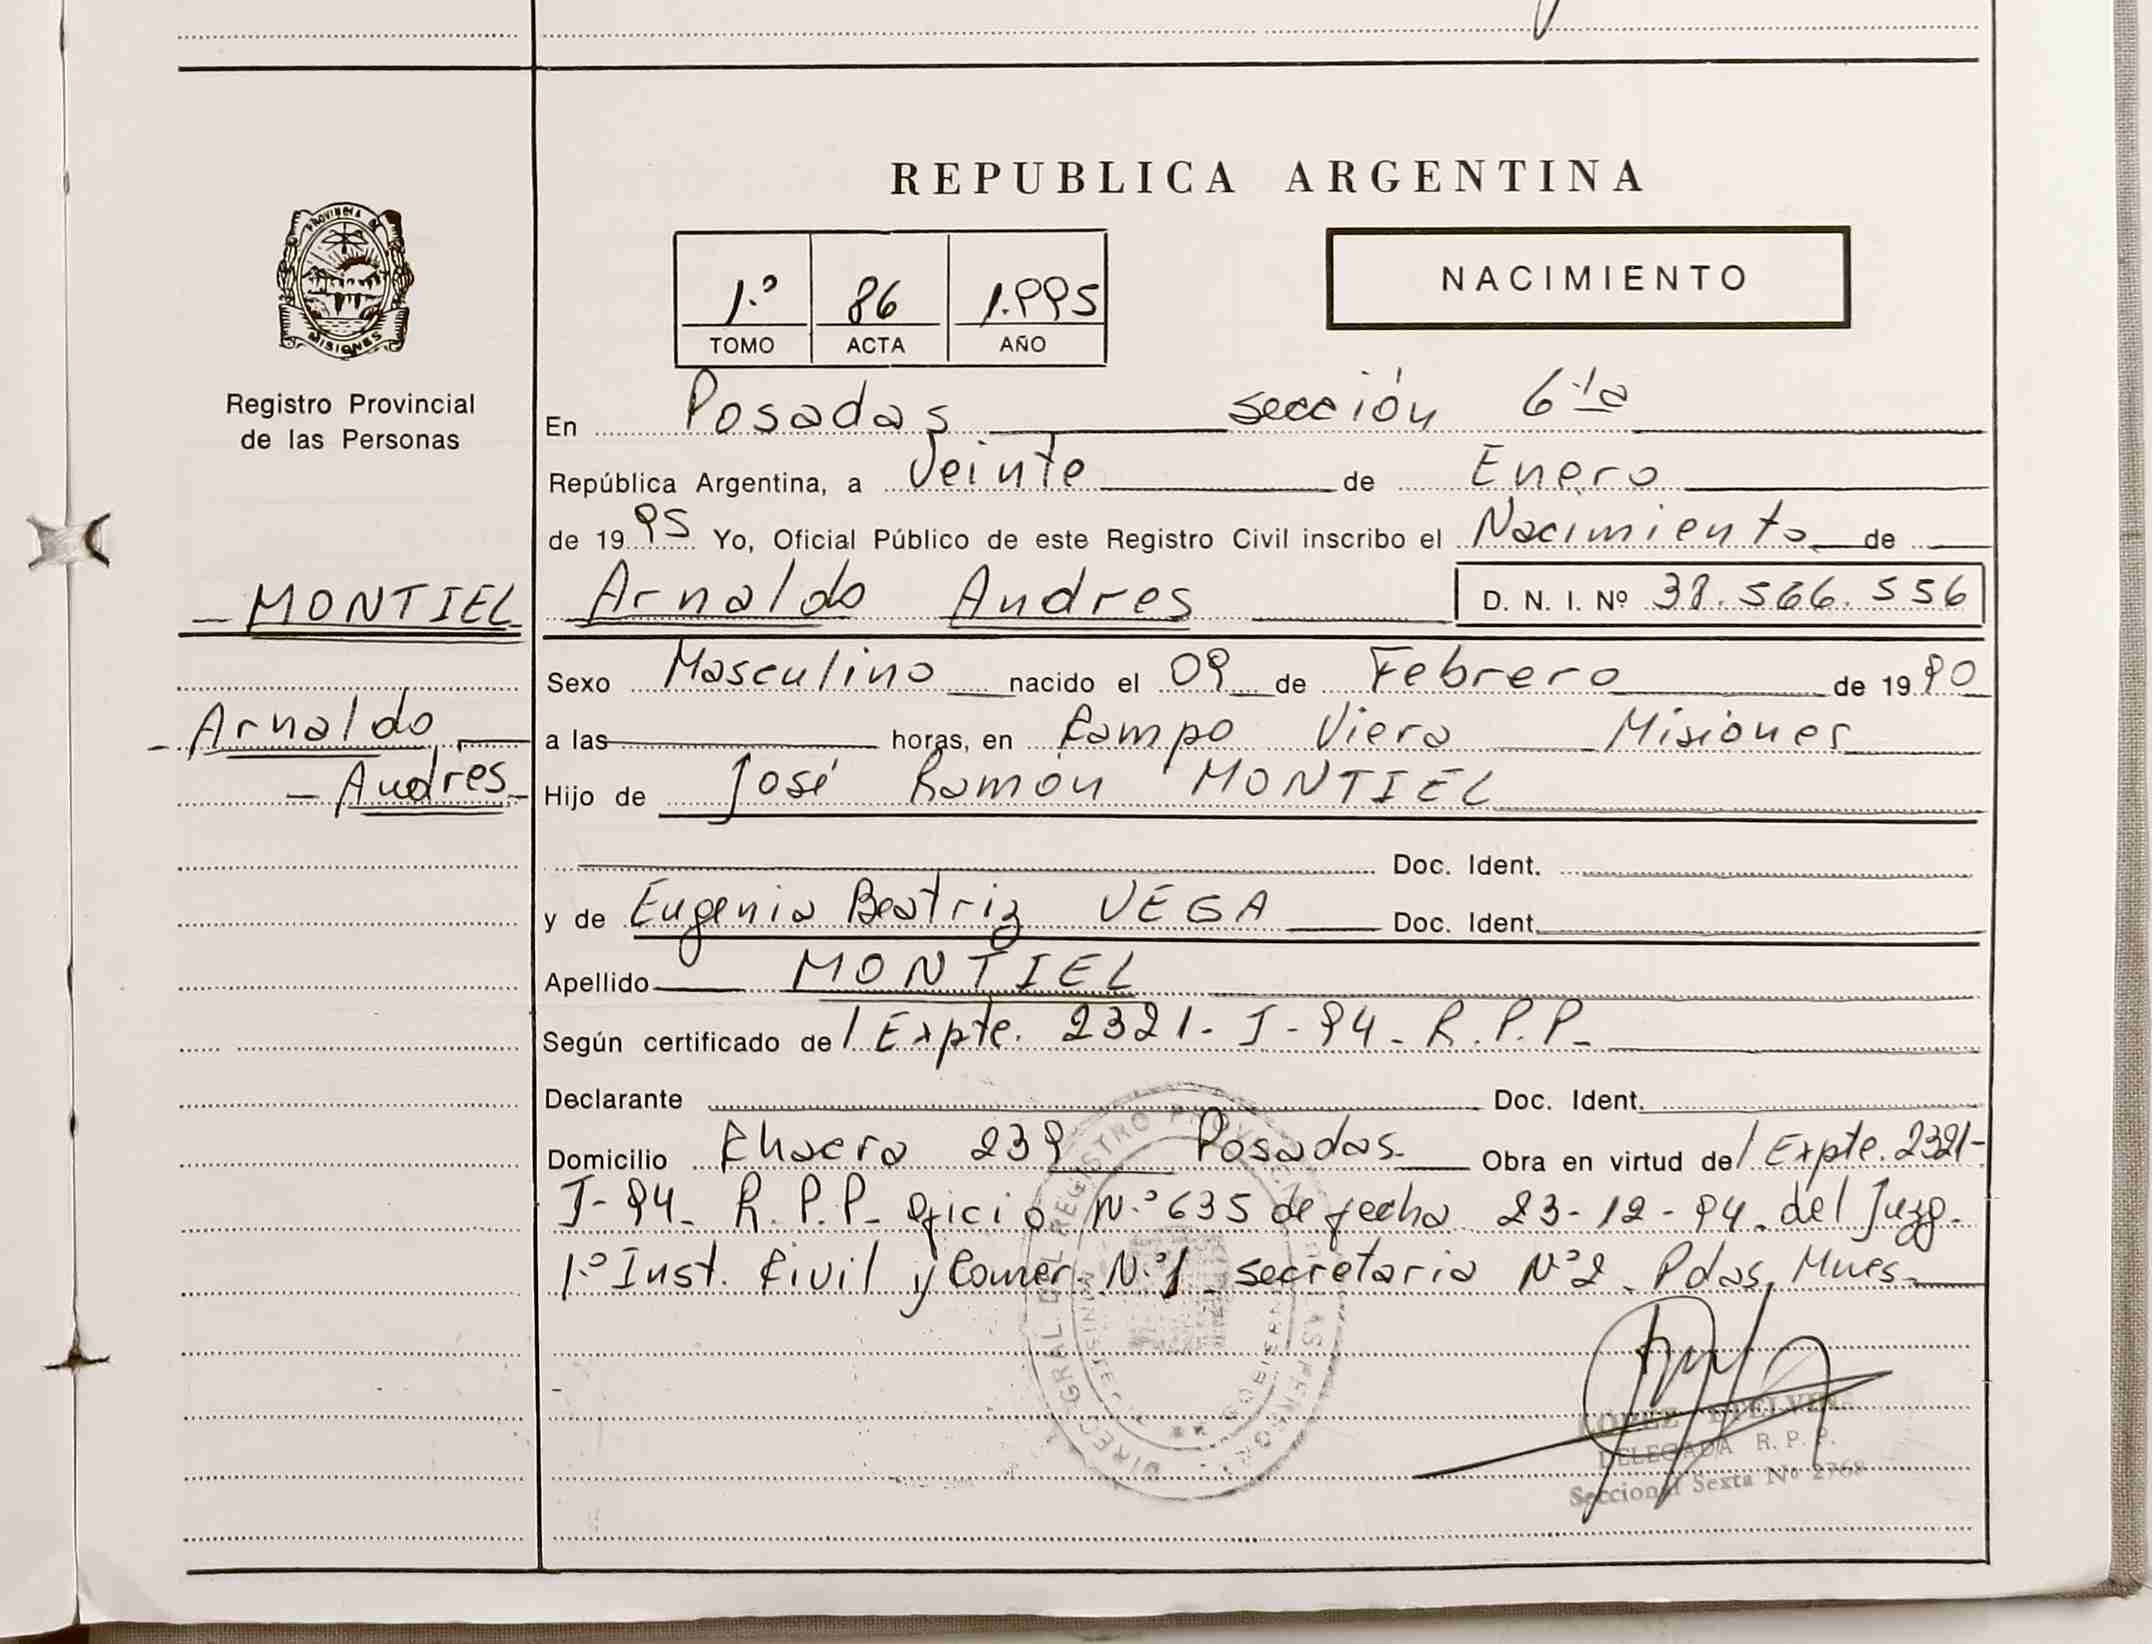 REPUBLICA ARGENTINA
PROVINCIA DE MISIONES
Registro Provincial
de las Personas
1.º 86 1.995
TOMO ACTA AÑO
NACIMIENTO
En Posadas sección 6ta
República Argentina, a Veinte de Enero
de 1995 Yo, Oficial Público de este Registro Civil inscribo el Nacimiento de
MONTIEL
Arnaldo Andres D. N. I. Nº 38.566.556
Sexo Masculino nacido el 09 de Febrero de 1990
Arnaldo
a las horas, en Campo Viera Misiones
Andres
Hijo de José Ramón MONTIEL
Doc. Ident.
y de Eugenia Beatriz VEGA Doc. Ident.
Apellido MONTIEL
Según certificado del Expte. 2321-J-94-R.P.P-
Declarante Doc. Ident.
Domicilio Chacra 239 Posadas Obra en virtud del Expte. 2321-
J-94- R.P.P- oficio N.º 635 de fecha 23-12-94. del Juzg.
1.º Inst. Civil y Comer. N.º 1 secretaria Nº 2. Pdas, Mnes-
DIREC. GRAL. DEL REGISTRO PROVINCIAL DE LAS PERSONAS
MISIONES
GOBIERNO
LOPEZ ETELVINA
DELEGADA R. P. P.
Seccional Sexta Nº 2768